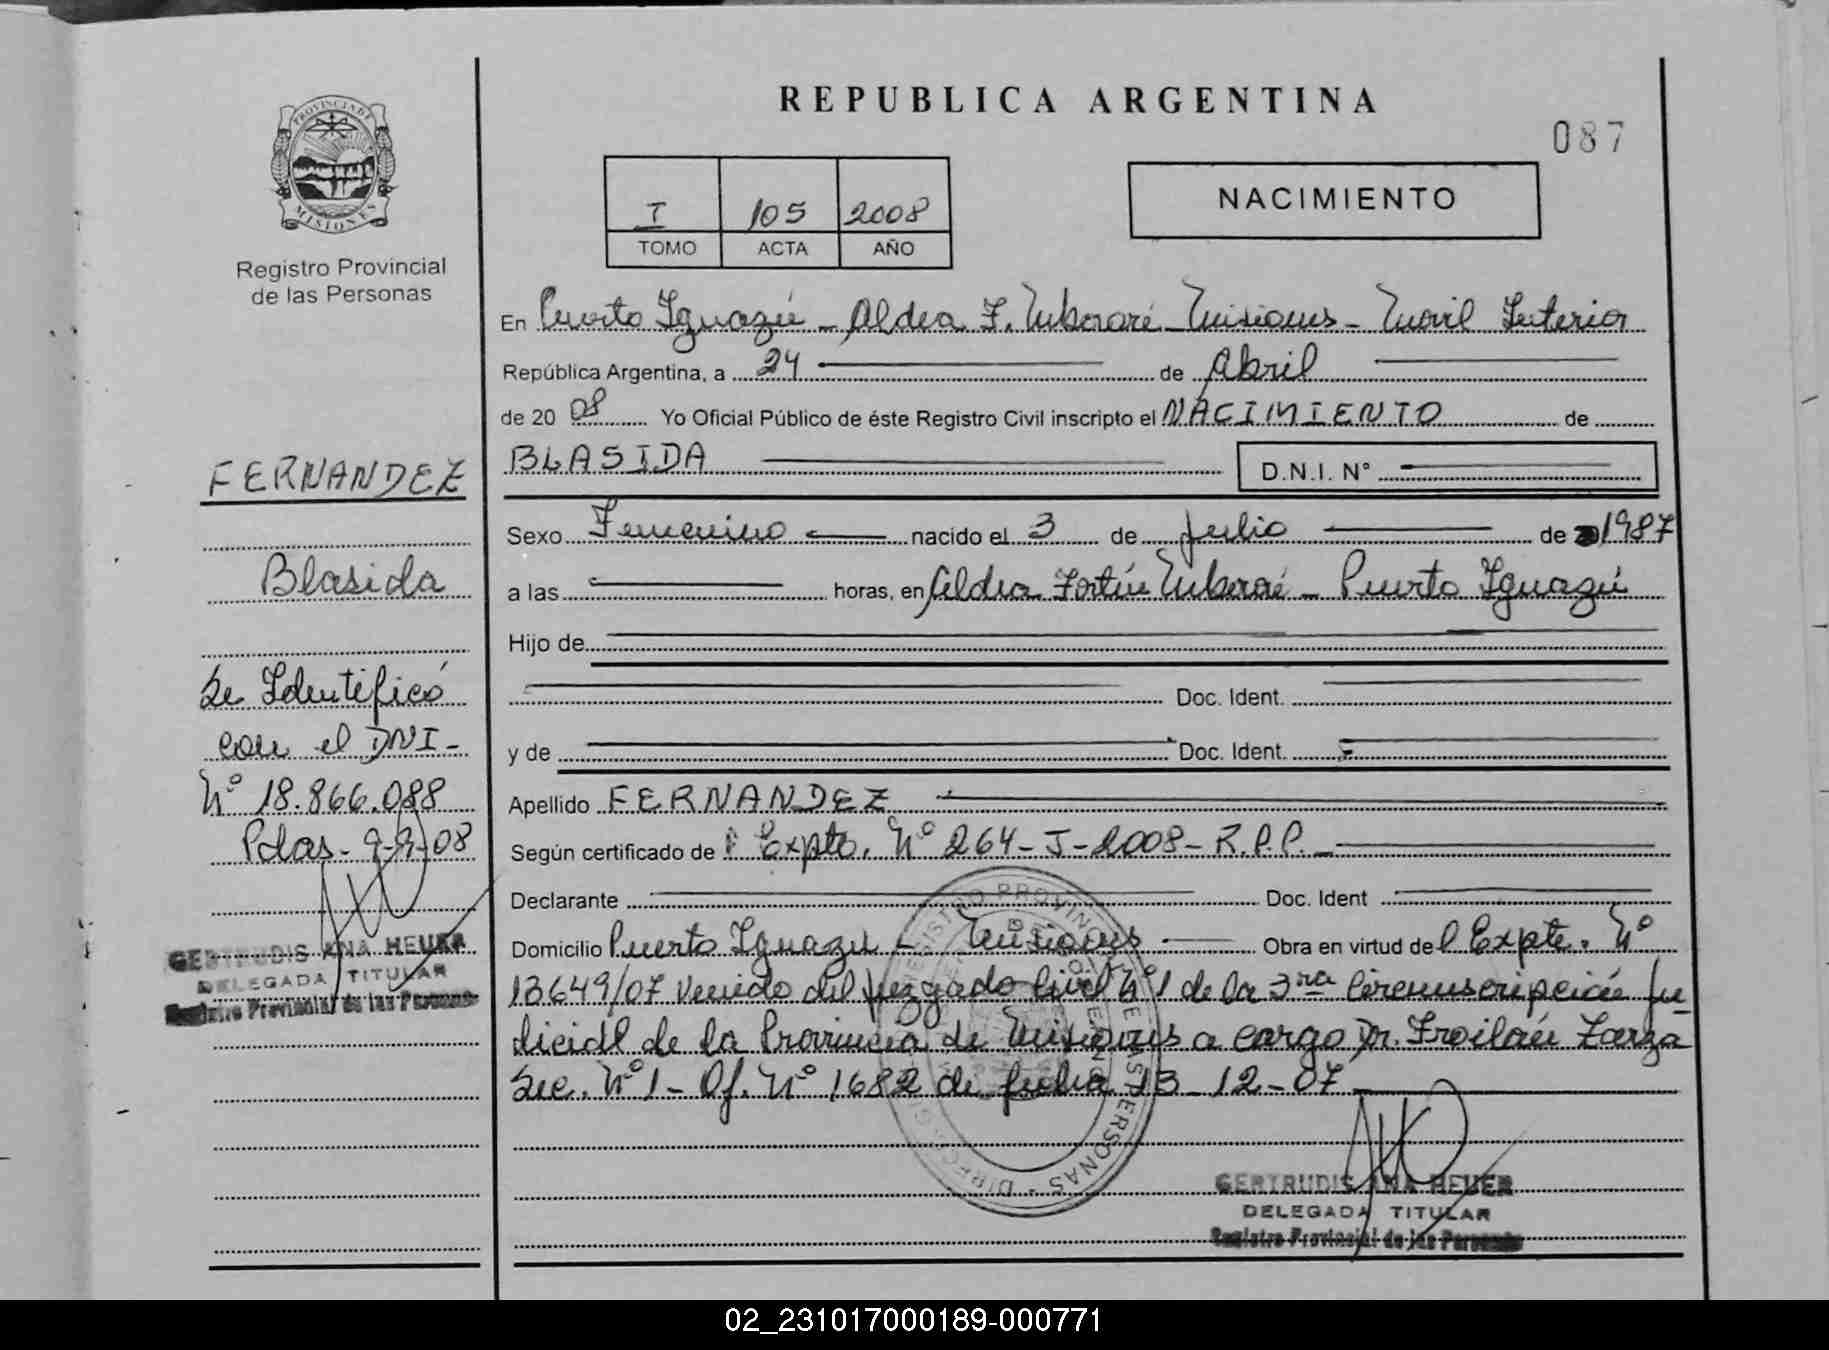 REPUBLICA ARGENTINA
087
PROVINCIA DE
MISIONES
Registro Provincial
de las Personas
I 105 2008
TOMO ACTA AÑO
NACIMIENTO
En Puerto Iguazú - Aldea F. Mbororé - Misiones - Movil Interior
República Argentina, a 24 de Abril
de 20 08 Yo Oficial Público de éste Registro Civil inscripto el NACIMIENTO de
BLASIDA D.N.I. N°
Sexo Femenino nacido el 3 de Julio de 1987
a las horas, en Aldea Fortín Mbororé - Puerto Iguazú
Hijo de
Doc. Ident.
y de Doc. Ident.
Apellido FERNANDEZ
Según certificado de Expte. N° 264-J-2008-R.P.P.
Declarante Doc. Ident
Domicilio Puerto Iguazú - Misiones Obra en virtud del Expte. N°
13649/07 venido del Juzgado Civil N°1 de la 3ra Circunscripción Ju-
dicial de la Provincia de Misiones a cargo Dr. Froilán Zarza
Sec. N°1 - Of. N° 1682 de fecha 13-12-07
GERTRUDIS ANA HEUER
DELEGADA TITULAR
Registro Provincial de las Personas
FERNANDEZ
Blasida
Se Identificó
con el DNI-
N° 18.866.088
Pdas- 9-9-08
GERTRUDIS ANA HEUER
DELEGADA TITULAR
Registro Provincial de las Personas
02_231017000189-000771